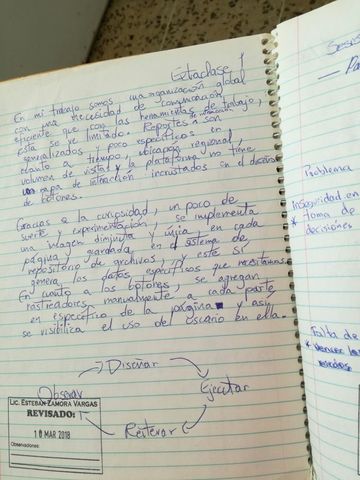 Extraclase 1
En mi trabajo somos una organización global
con una necesidad de comunicación
eficiente que con las herramientas de trabajo,
ésta se ve limitado. Reportes son
generalizados y poco específicos en
cuanto a tiempo, ubicación regional,
volumen de vistas y la plataforma no tiene
mapa de interacción incrustados en el
de botones.
Gracias a la curiosidad, un poco de
suerte y experimentación, se implementa
una imagen diminuta y única en cada
página y guardada en el sistema de
repositorio de archivos, y este sí
genera los datos específicos que necesitamos.
En cuanto a los botones, se agregan
rastreadores manualmente a cada parte
en específico de la página y así
se visibiliza el uso del usuario en ella.
Diseñar
Observar
Ejecutar
Reiterar
LIC. ESTEBAN ZAMORA VARGAS
REVISADO:
10 MAR 2018
Observaciones:
Problema
Inseguridad en
toma de
decisiones
Falta de